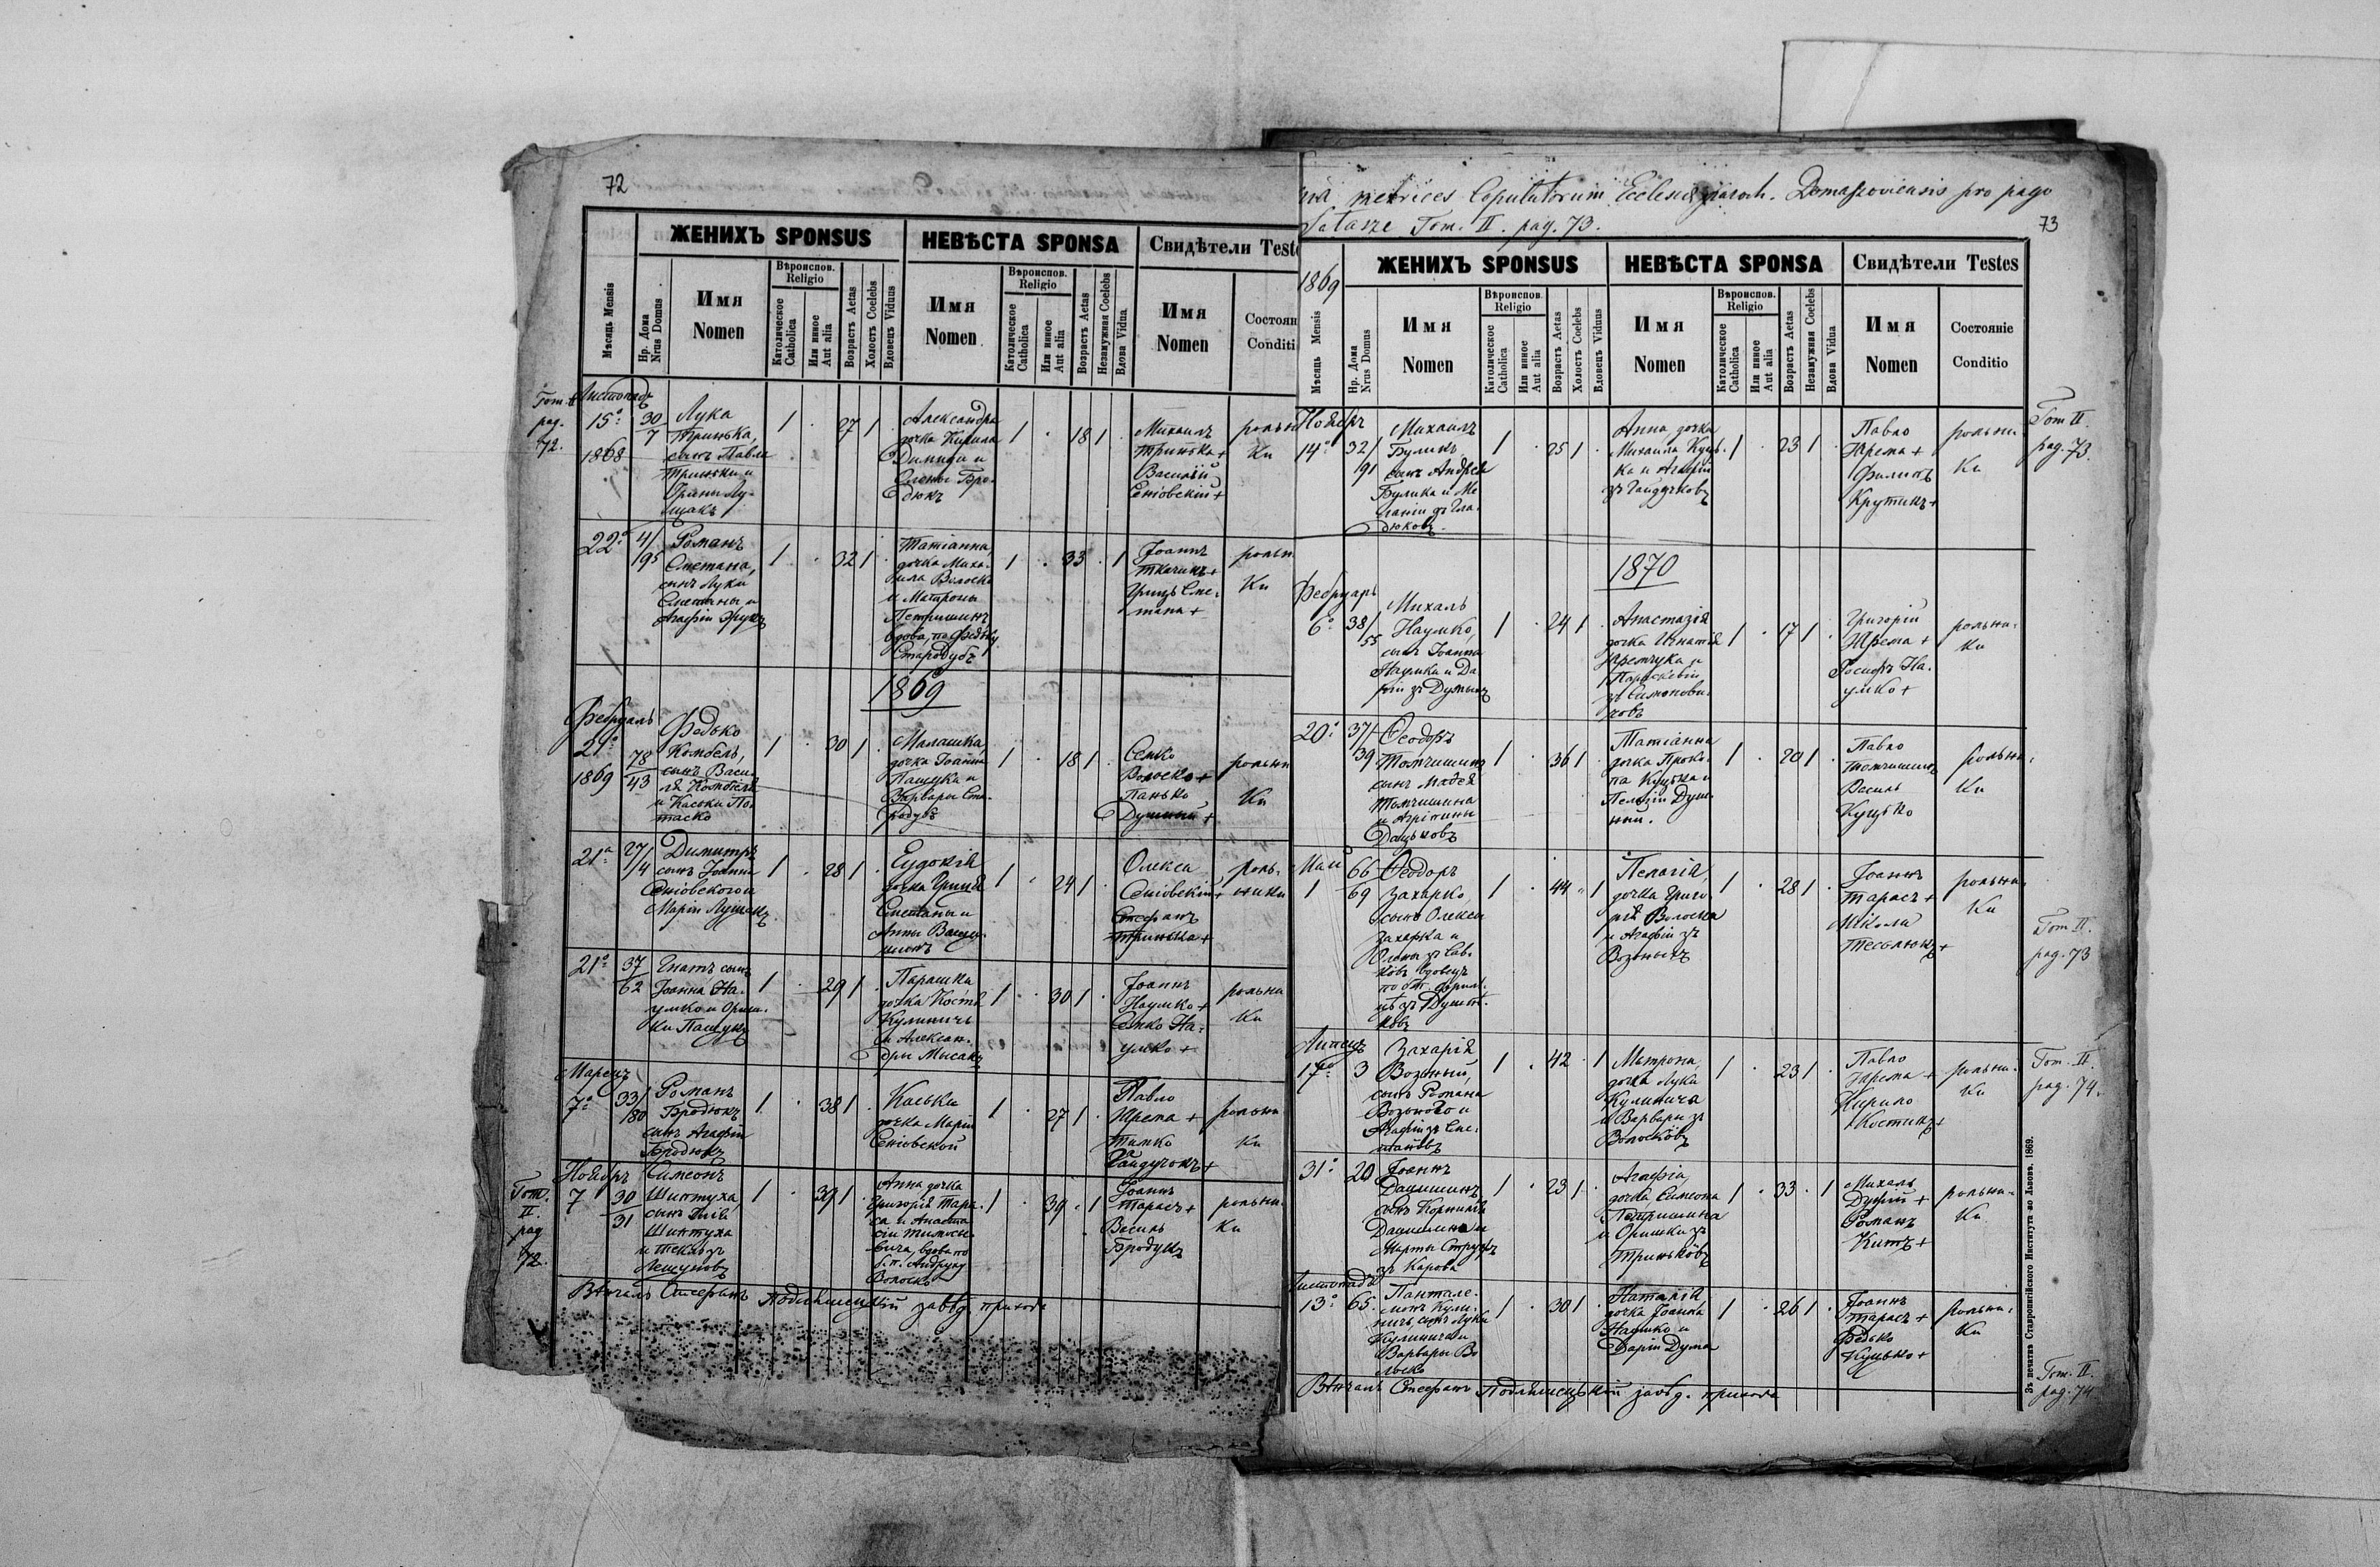 72
ЖЕНИХЪ SPONSUS
НЕВѢСТА SPONSA
Свидѣтели Teste
Мѣсяць Mensis
Нр. Дома
Nrus Domus
Имя
Nomen
Вѣроиспов.
Religio
Католическое
Catholica
Или инное
Aut alia
Возрастъ Aetas
Холость Coelebs
Вдовецъ Viduus
Имя
Nomen
Вѣроиспов.
Religio
Католическое
Catholica
Или инное
Aut alia
Возрастъ Aetas
Незамужная Coelebs
Вдова Vidua
Имя
Nomen
Состоян
Conditi
Tom. II
pag.
72.
Листопадъ
15о 1868
30/7
Лука
Тринька,
сынъ Павла
Триньки и
1 . 27 1 .
Александра
дочка Кирила
и
Елены Бро-
дюкъ
1 . 18 1 .
Михаилъ
Тринька +
Василій
Сеніовскій +
рольни
ки
22о
4/95
Романъ
Сметана,
сынъ Луки
Сметаны и
Агафіи
1 . 32 1 .
Татіанна,
дочка Миха-
ила Волоско
и Матроны
Петришинъ
вдова по Федьку
Стародубъ
1 . 33 . 1
Іоаннъ
Ткачикъ +
Грицъ Сме-
тана +
рольн
ки
1869
Фебруаль
21о
1869
78/43
Федько
Комбель,
сынъ Васи-
ля Комбеля
и Каськи По-
таско
1 . 30 1 .
Малашка,
дочка Іоанна
Пащука и
Варвары Ста-
родубъ
1 . 18 1 .
Семко
Волоско +
Панько
Душный +
рольни
ки
21о
27/4
Димитръ
сынъ Іоанна
Сеніовского и
Маріи Лущакъ
1 . 28 1 .
Еудокія
дочка Гриця
Сметаны и
Анны
1 . 24 1 .
Олекса
Сеніовскій +
Стефанъ
Тринька +
роль-
ники
21о
37/62
Гнатъ сынъ
Іоанна На-
умко и Ориш-
ки Пащукъ
1 . 29 1 .
Парашка
дочка Костя
Кулиничъ
и Алексан-
дры Мысакъ
1 . 30 1 .
Іоаннъ
Наумко +
Семко На-
умко +
рольни
ки
Марецъ
7о
33/80
Романъ
Бродюкъ
сынъ Агафіи
Бродюкъ
1 . 38 1 .
Каська
дочка Маріи
Сеніовской
1 . 27 1 .
Павло
Ярема +
Тимко
Гайдучокъ +
рольни
ки
Tom.
II.
pag
72.
Ноябръ
7
30/31
Симеонъ
Шинтуха,
сынъ Илія
Шинтуха
и Теклі зъ
Лещуковъ
1 . 39 1 .
Анна дочка
Григорія Тара-
са и Анаста
сіи Тимось-
вича, вдова по
б.п. Андруху
Волоско
1 . 39 . 1
Іоаннъ
Тарасъ +
Василь
Бродукъ
рольни-
ки
Вѣнчалъ Стефанъ Подляшецкій завѣд. прихода
metrices Copulatorum Ecclesiae paroch. Domaszoviensis pro pago
Salasze Tom. II. pag. 73.
73
1869
ЖЕНИХЪ SPONSUS
НЕВѢСТА SPONSA
Свидѣтели Testes
Мѣсяць Mensis
Нр. Дома
Nrus Domus
Имя
Nomen
Вѣроиспов.
Religio
Католическое
Catholica
Или инное
Aut alia
Возрастъ Aetas
Холость Coelebs
Вдовецъ Viduus
Имя
Nomen
Вѣроиспов.
Religio
Католическое
Catholica
Или инное
Aut alia
Возрастъ Aetas
Незамужная Coelebs
Вдова Vidua
Имя
Nomen
Состояніе
Conditio
Ноябръ
14о
32/91
Михаилъ
Буликъ
сынъ Андрея
Булика и Ме
ланіи зъ Гла-
дюковъ
1 . 25 1 .
Анна дочка
Михаила Куць-
ка и Агафіи
зъ Гайдучковъ
1 . 23 1 .
Павло
Ярема +
Филипъ
Крутикъ +
рольни-
ки
Tom II.
pag. 73.
1870
Фебруаръ
6о
38/55
Михаль
Наумко,
сынъ Іоанна
Наумка и Да
ріи зъ Думыхъ
1 . 24 1 .
Анастазія
дочка Игнатія
Яремчука и
Параскевіи
зъ Симонови-
човъ
1 . 17 1 .
Григорій
Ярема +
Іосифъ На-
умко +
рольни-
ки
20о
37/39
Ѳеодоръ
Томчишинъ
сынъ Мадея
Томчишина
и Агрипины
Дацьковъ
1 . 36 1 .
Татіанна
дочка Проко-
па Куцька и
Пелагіи Душ-
ный.
1 . 20 1 .
Павло
Томчишинъ
Василь
Куцько
рольни-
ки
Маи
1
66/69
Ѳеодоръ
Захарко
сынъ Олексы
Захарка и
Олены зъ Сав-
ковъ вдовецъ
1 . 44 . 1
Пелагія,
дочка Григо-
рія Волоска
и Агафіи зъ
Возныхъ
1 . 28 1 .
Іоаннъ
Тарасъ +
Микола
Теслюкъ +
рольни-
ки
Tom II.
pag. 73
Липецъ
17о
3
Захарія
Возный,
сынъ Романа
Возного и
Агафіи зъ Сме-
тановъ
1 . 42 . 1
Матрона,
дочка Луки
Кулинича
и Варвары зъ
Волосковъ
1 . 23 1 .
Павло
Ярема +
Кирило
Костикъ +
рольни-
ки
Tom. II.
pag. 74.
31о
20
Іоаннъ
Дацишинъ
сынъ Корнилія
Дацишина и
Марты Струкъ
зъ Карова
1 . 23 1 .
Агафіа,
дочка Симеона
Петришина
и Оришки зъ
Триньковъ
1 . 33 . 1
Михаль
Дуфій +
Романъ
Китъ +
рольни-
ки
Листопадъ
13о
65.
Пантале-
имонъ Кули-
ничъ, сынъ Луки
Кулинича и
Варвары Во
лоско
1 . 30 1 .
Наталія
дочка Іоанна
Наумко и
Даріи Дума
1 . 26 1 .
Іоаннъ
Тарасъ +
Федько
Куцько +
рольни-
ки
Tom. II.
pag. 74
Вѣнчалъ Стефанъ Подляшецькій завѣд. прихода
Зъ печатнѣ Ставропигійского Института во Львовѣ. 1869.